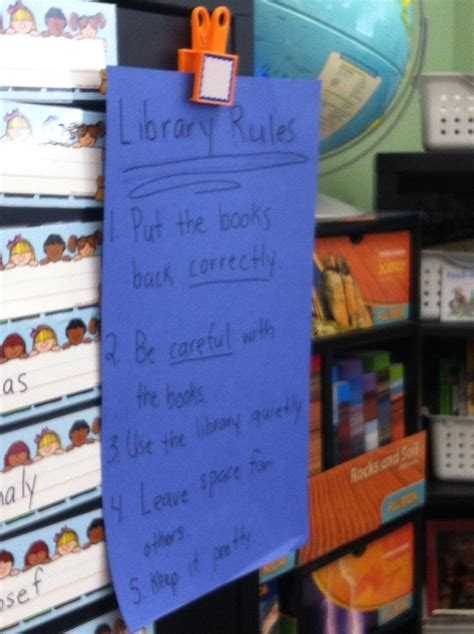 Library Rules
1. Put the books
back correctly
2. Be careful with
the books.
3. Use the library quietly
4. Leave space for
others.
5. Keep it pretty.
as
naly
osef
Rocks and Soil